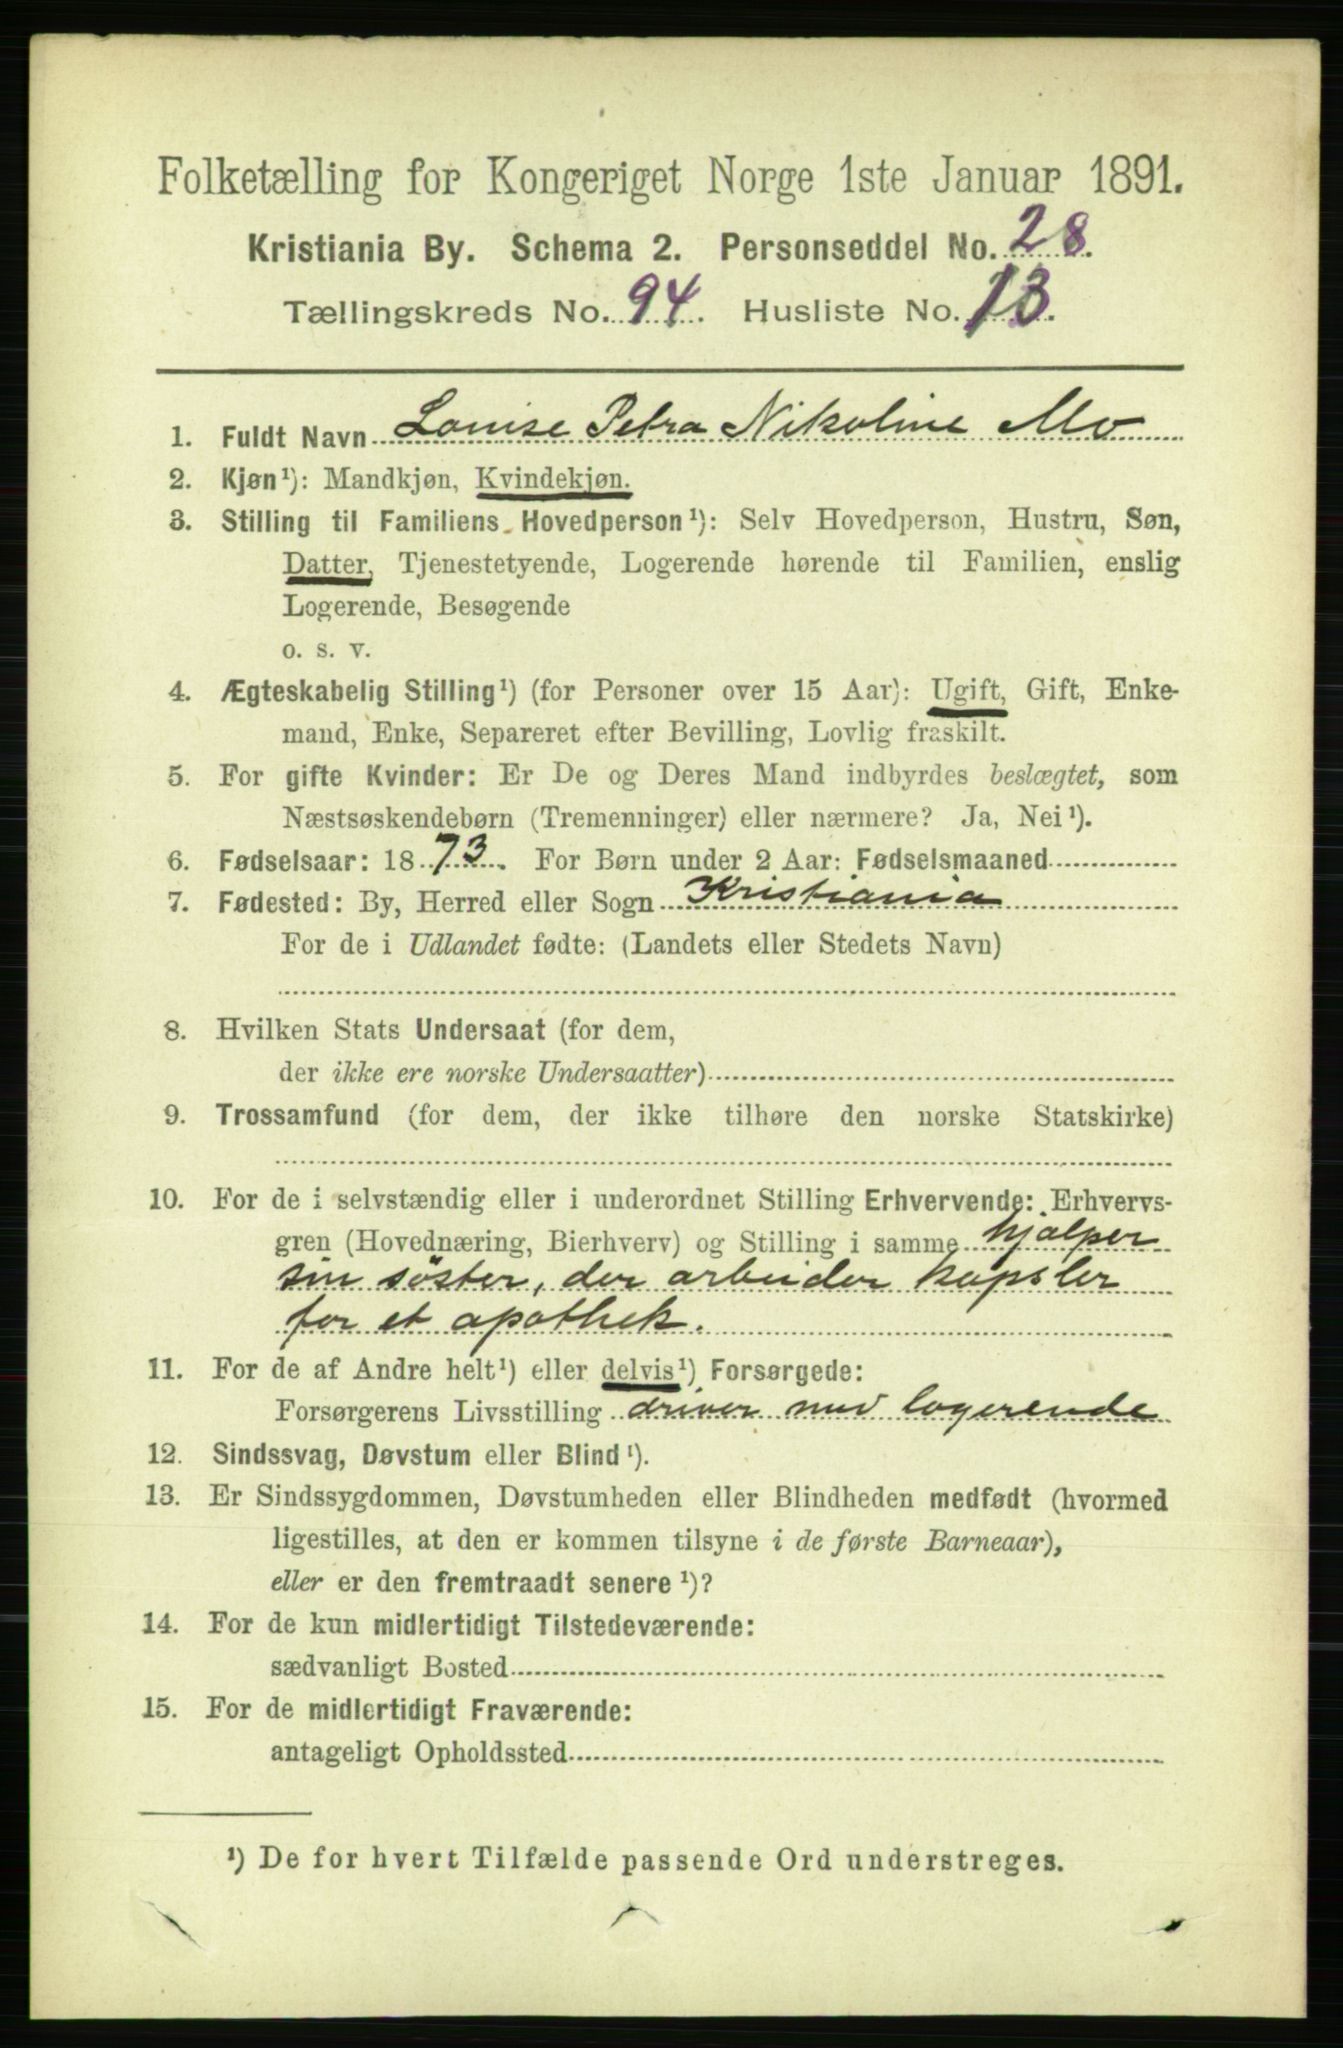 Folketælling for Kongeriget Norge 1ste Januar 1891.
Kristiania By. Schema 2. Personseddel No. 28.
Tællingskreds No. 94. Husliste No. 13.
1. Fuldt Navn Louise Petra Nikoline Mo
2. Kjøn¹): Mandkjøn, Kvindekjøn.
3. Stilling til Familiens Hovedperson¹): Selv Hovedperson, Hustru, Søn,
Datter, Tjenestetyende, Logerende hørende til Familien, enslig
Logerende, Besøgende
o. s. v.
4. Ægteskabelig Stilling¹) (for Personer over 15 Aar): Ugift, Gift, Enke-
mand, Enke, Separeret efter Bevilling, Lovlig fraskilt.
5. For gifte Kvinder: Er De og Deres Mand indbyrdes beslægtet, som
Næstsøskendebørn (Tremenninger) eller nærmere? Ja, Nei¹).
6. Fødselsaar: 1873. For Børn under 2 Aar: Fødselsmaaned
7. Fødested: By, Herred eller Sogn Kristiania
For de i Udlandet fødte: (Landets eller Stedets Navn)
8. Hvilken Stats Undersaat (for dem,
der ikke ere norske Undersaatter)
9. Trossamfund (for dem, der ikke tilhøre den norske Statskirke)
10. For de i selvstændig eller i underordnet Stilling Erhvervende: Erhvervs-
gren (Hovednæring, Bierhverv) og Stilling i samme hjælper
sin søster, der arbeider kapsler
for et apothek.
11. For de af Andre helt¹) eller delvis¹) Forsørgede:
Forsørgerens Livsstilling driver med logerende
12. Sindssvag, Døvstum eller Blind¹).
13. Er Sindssygdommen, Døvstumheden eller Blindheden medfødt (hvormed
ligestilles, at den er kommen tilsyne i de første Barneaar),
eller er den fremtraadt senere¹)?
14. For de kun midlertidigt Tilstedeværende:
sædvanligt Bosted
15. For de midlertidigt Fraværende:
antageligt Opholdssted
¹) De for hvert Tilfælde passende Ord understreges.